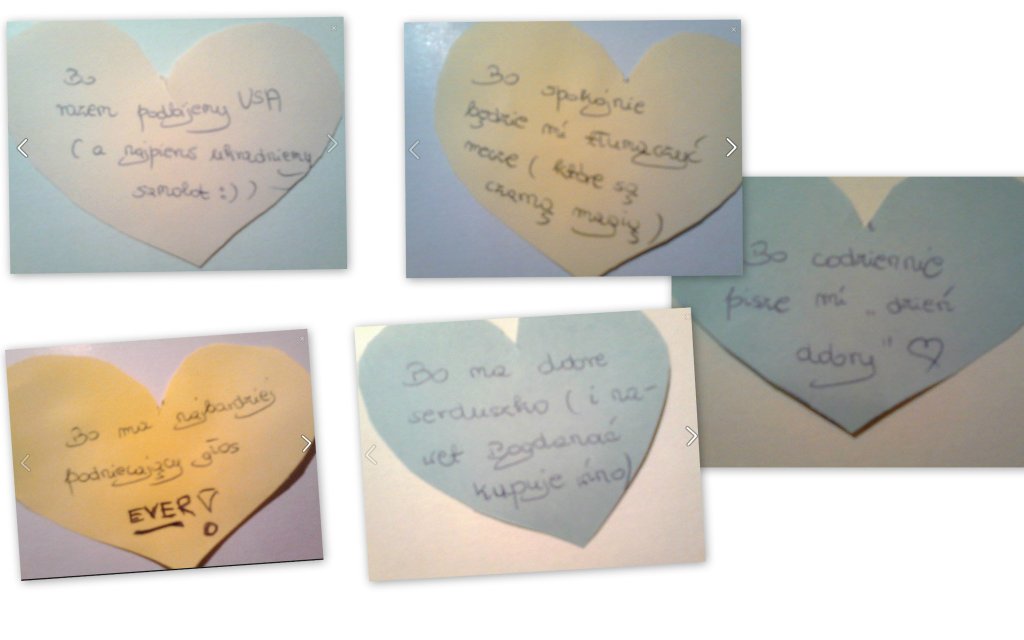 Bo
razem podbijemy USA
( a najpierw ukradniemy
samolot :) )
Bo spokojnie
będzie mi tłumaczyć
mecze ( które są
czarną magią )
Bo codziennie
pisze mi „ dzień
dobry" ♡
Bo ma najbardziej
podniecający głos
EVER !
Bo ma dobre
serduszko ( i na-
wet
kupuje wino)